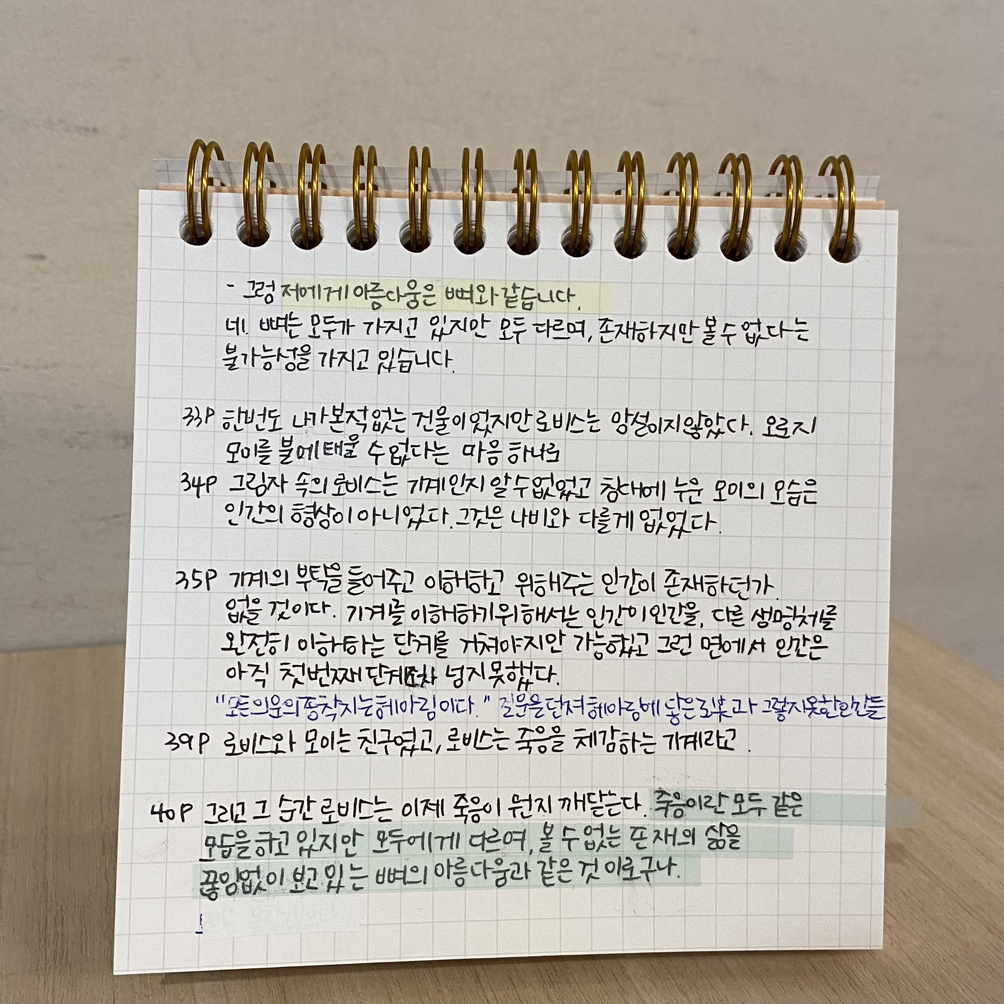 - 그럼 저에게 아름다움은 뼈와 같습니다.
네. 뼈는 모두가 가지고 있지만 모두 다르며, 존재하지만 볼 수 없다는
불가능성을 가지고 있습니다.
33P 한번도 나가본적 없는 건물이었지만 로비스는 망설이지 않았다. 오로지
모이를 불에 태울 수 없다는 마음 하나로
34P 그림자 속의 로비스는 기계인지 알 수 없었고 침대에 누운 모이의 모습은
인간의 형상이 아니었다. 그것은 나비와 다를게 없었다.
35P 기계의 부탁을 들어주고 이해하고 위해주는 인간이 존재하던가.
없을 것이다. 기계를 이해하기 위해서는 인간이 인간을, 다른 생명체를
완전히 이해하는 단계를 거쳐야지만 가능했고 그런 면에서 인간은
아직 첫번째 단계조차 넘지 못했다.
"모든 의문의 종착지는 헤아림이다." 질문을 던져 헤아림에 닿은 로봇과 그렇지 못한 인간들
39P 로비스와 모이는 친구였고, 로비스는 죽음을 체감하는 기계라고.
40P 그리고 그 순간 로비스는 이제 죽음이 뭔지 깨닫는다. 죽음이란 모두 같은
모습을 하고 있지만 모두에게 다르며, 볼 수 없는 존재의 삶을
끊임없이 보고 있는 뼈의 아름다움과 같은 것이로구나.